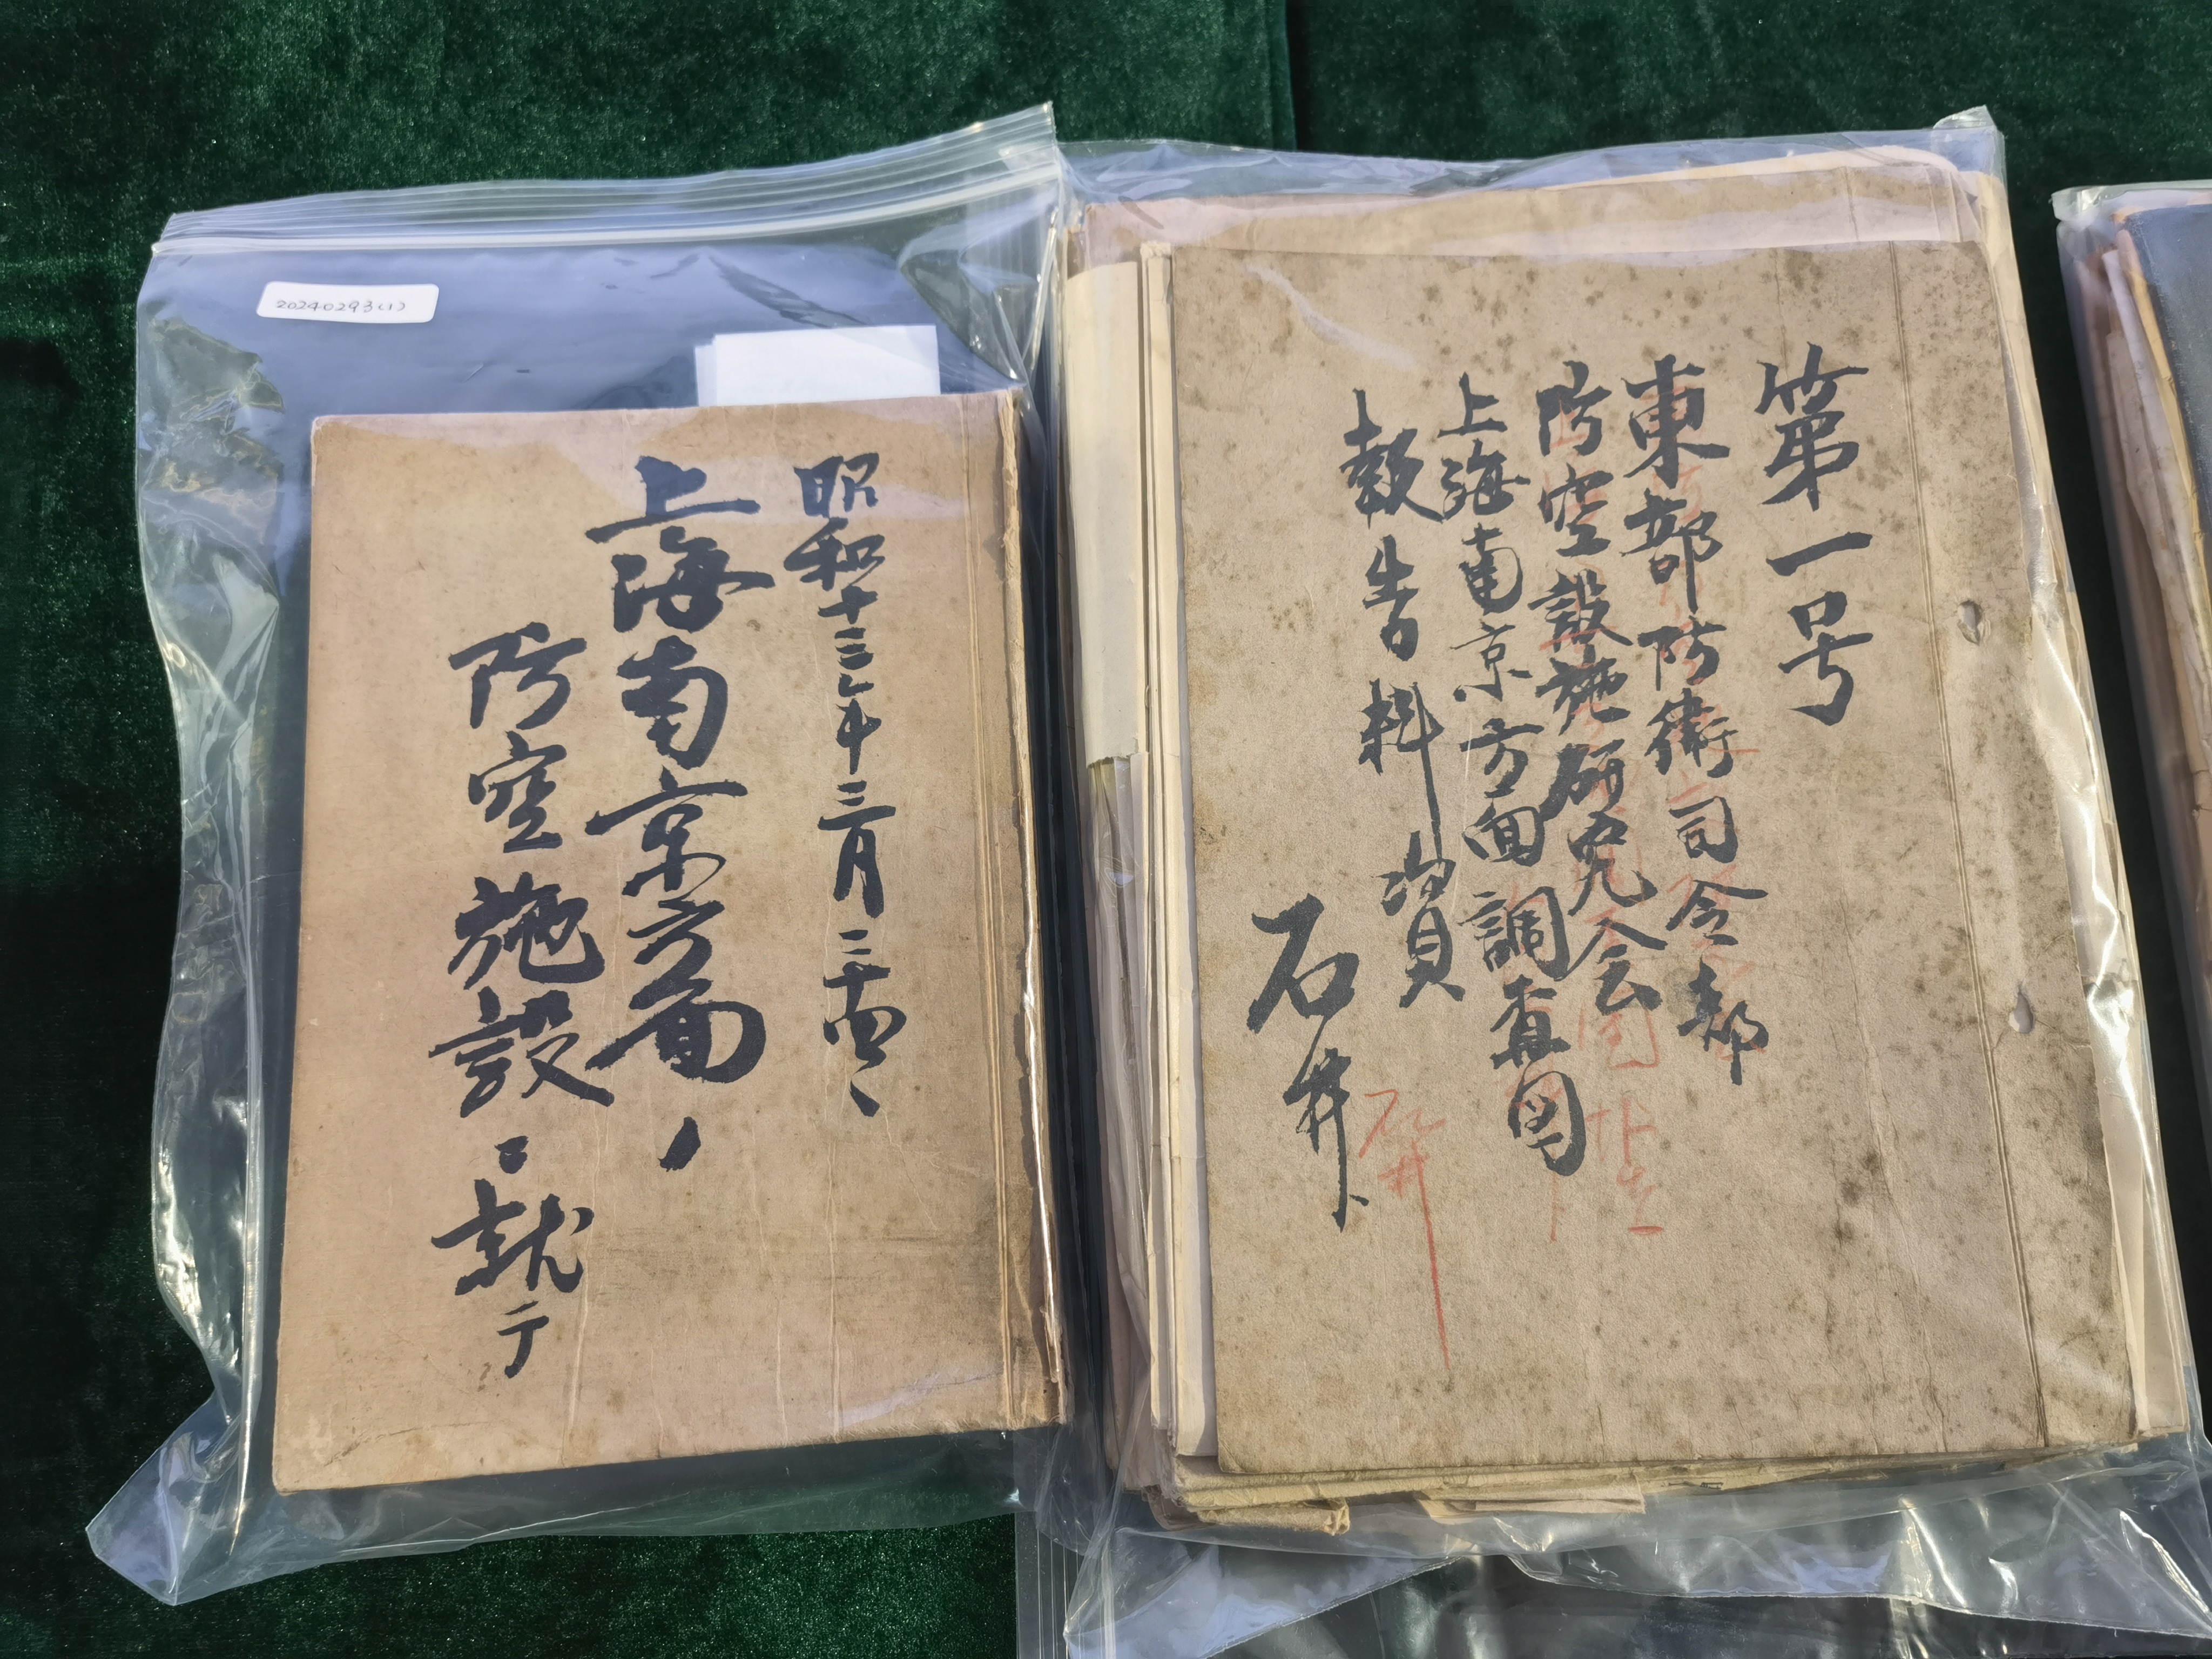 20240293(1)
昭和十三年三月二十四
上海南京方面ノ
防空施設ニ就テ
第一号
東部防衛司令部
防空設施研究会
上海南京方面調査図
報告料資
石井
石井